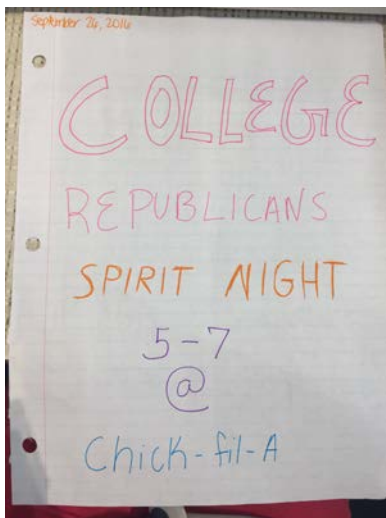 September 26, 2016
COLLEGE
REPUBLICANS
SPIRIT NIGHT
5-7
@
Chick-fil-A